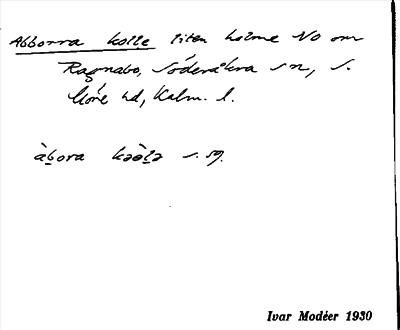 Abborra kolle liten holme NO om
Ragnabo, Söderåkra sn, S.
Möre hd, Kalm. l.
àbora kəòlə s. sg.
Ivar Modéer 1930